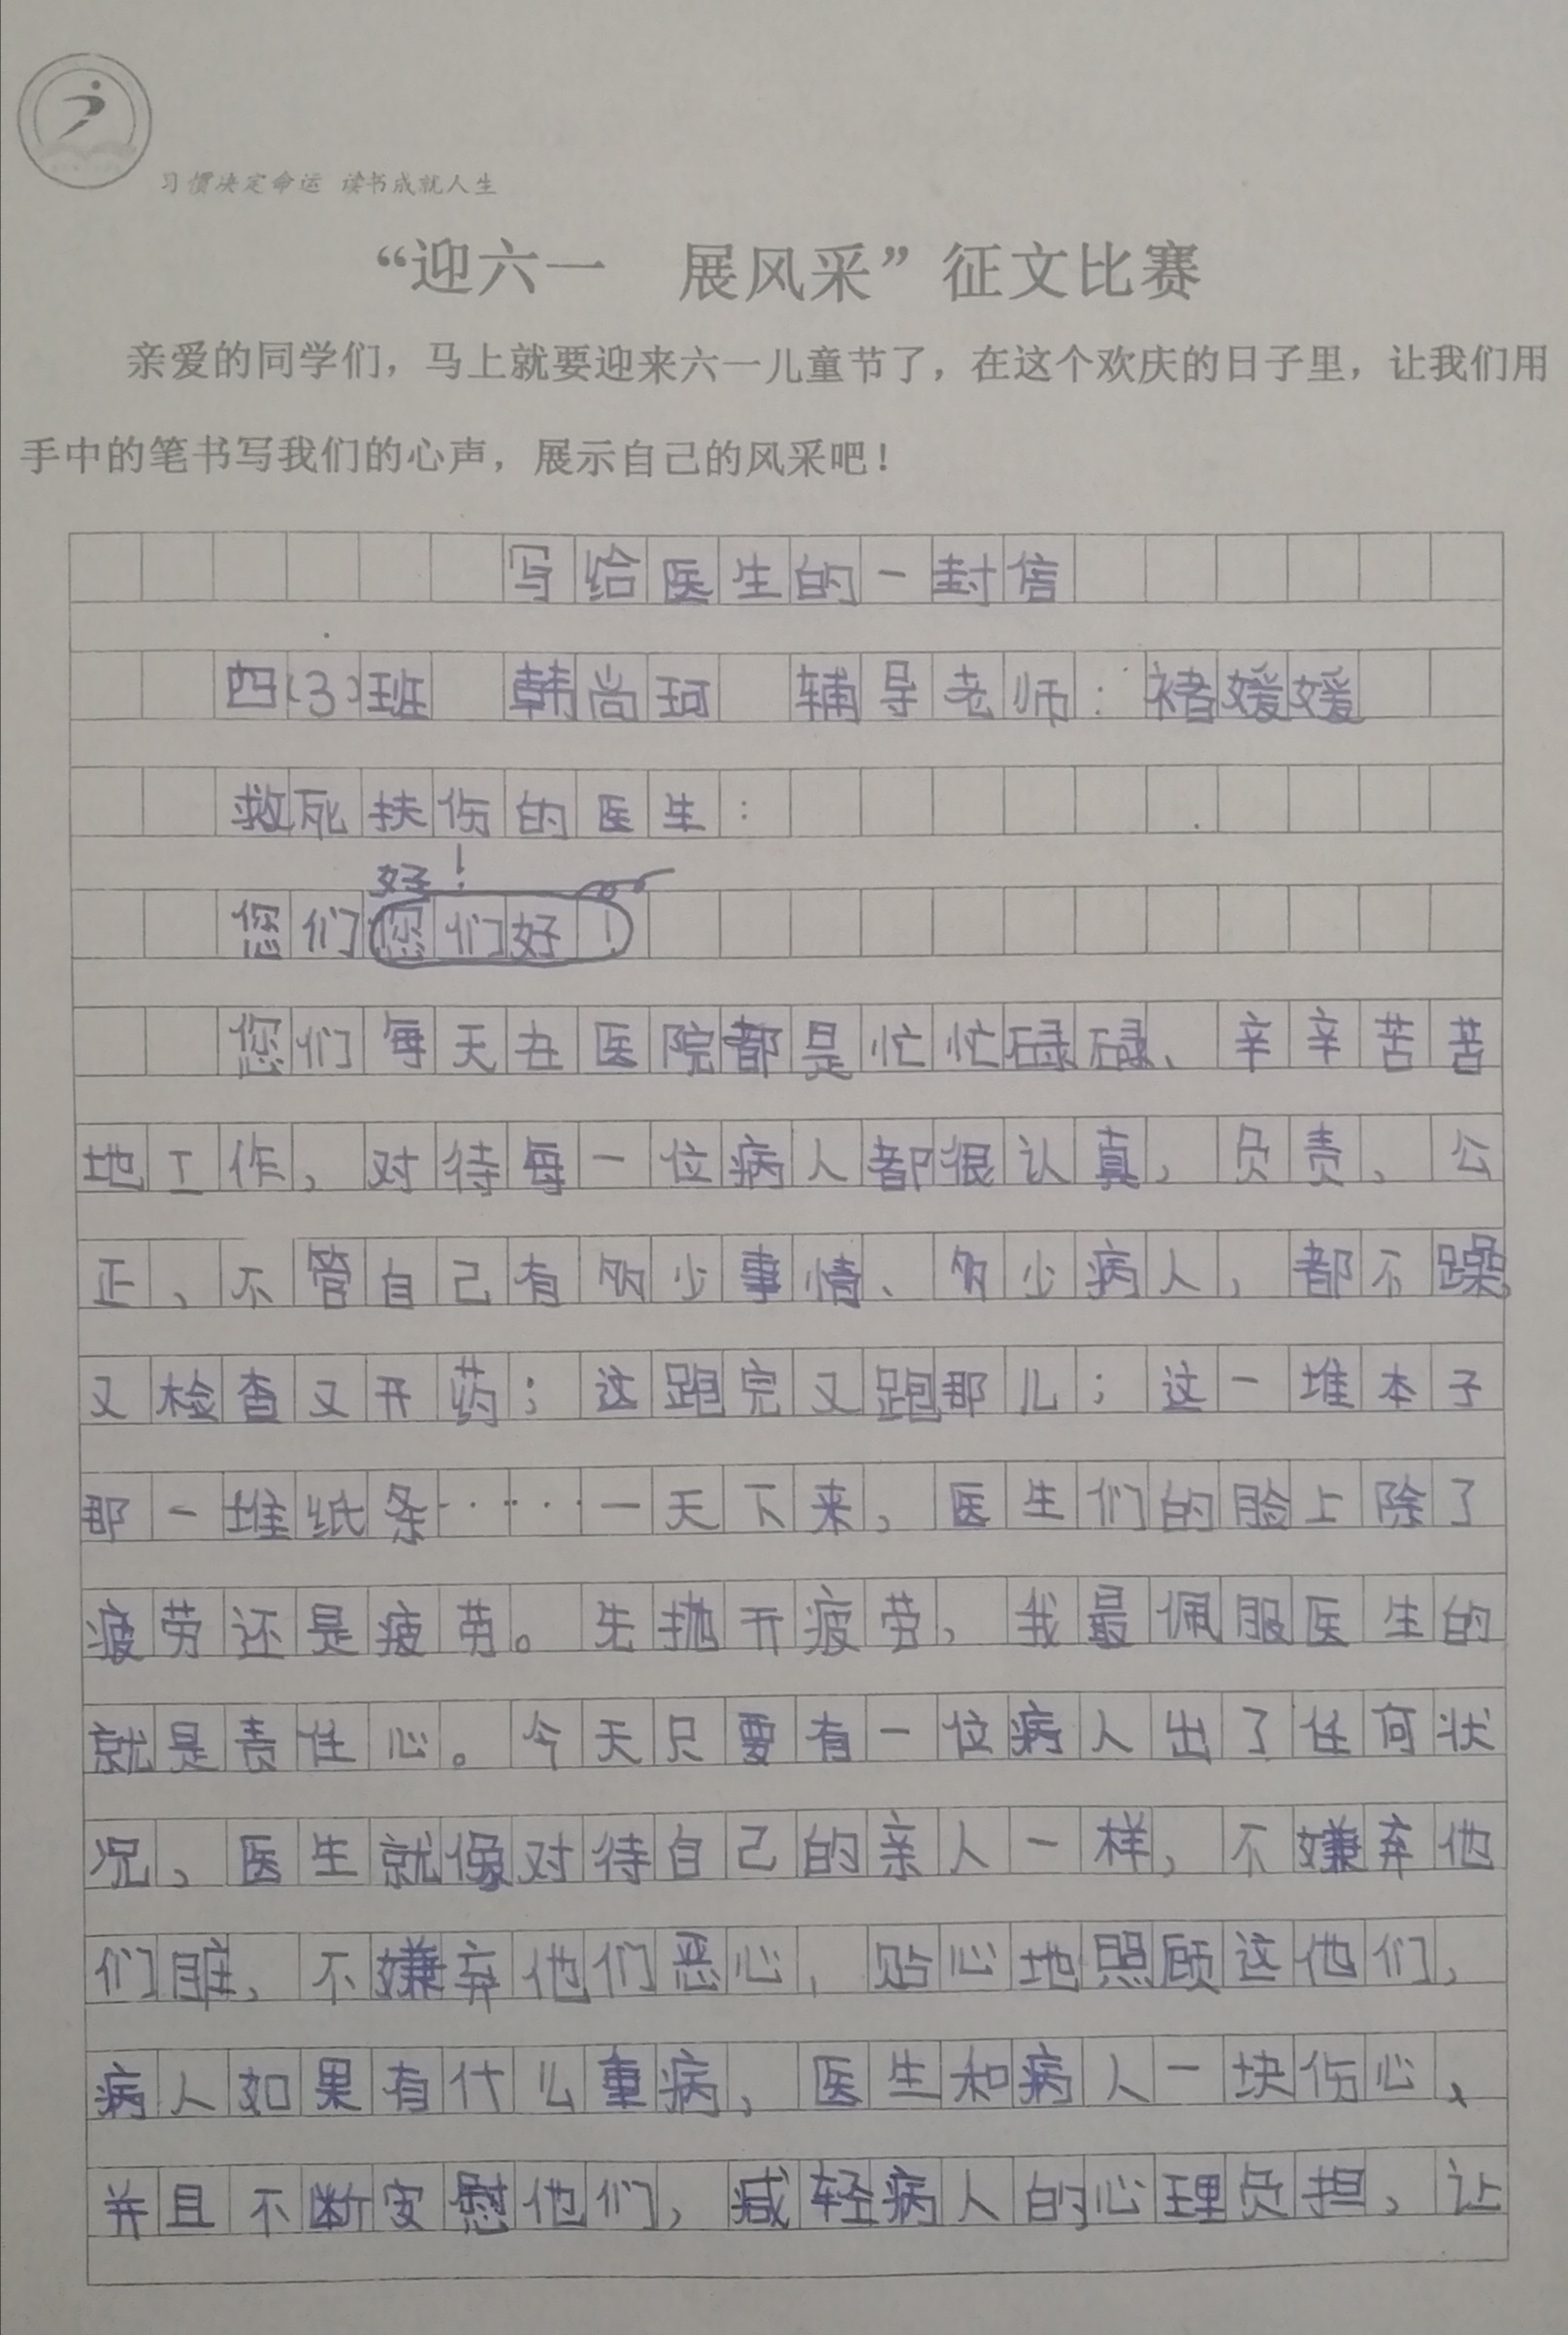 习惯决定命运 读书成就人生
“迎六一 展风采”征文比赛
亲爱的同学们，马上就要迎来六一儿童节了，在这个欢庆的日子里，让我们用
手中的笔书写我们的心声，展示自己的风采吧！
写给医生的一封信
四(3)班 韩尚珂 辅导老师：褚媛媛
救死扶伤的医生：
好！
您们您们好！
您们每天在医院都是忙忙碌碌、辛辛苦苦
地工作，对待每一位病人都很认真，负责、公
正，不管自己有多少事情、多少病人，都不躁，
又检查又开药；这跑完又跑那儿；这一堆本子
那一堆纸条……一天下来，医生们的脸上除了
疲劳还是疲劳。先抛开疲劳，我最佩服医生的
就是责任心。今天只要有一位病人出了任何状
况，医生就像对待自己的亲人一样，不嫌弃他
们脏，不嫌弃他们恶心，贴心地照顾这他们，
病人如果有什么重病，医生和病人一块伤心，
并且不断安慰他们，减轻病人的心理负担，让